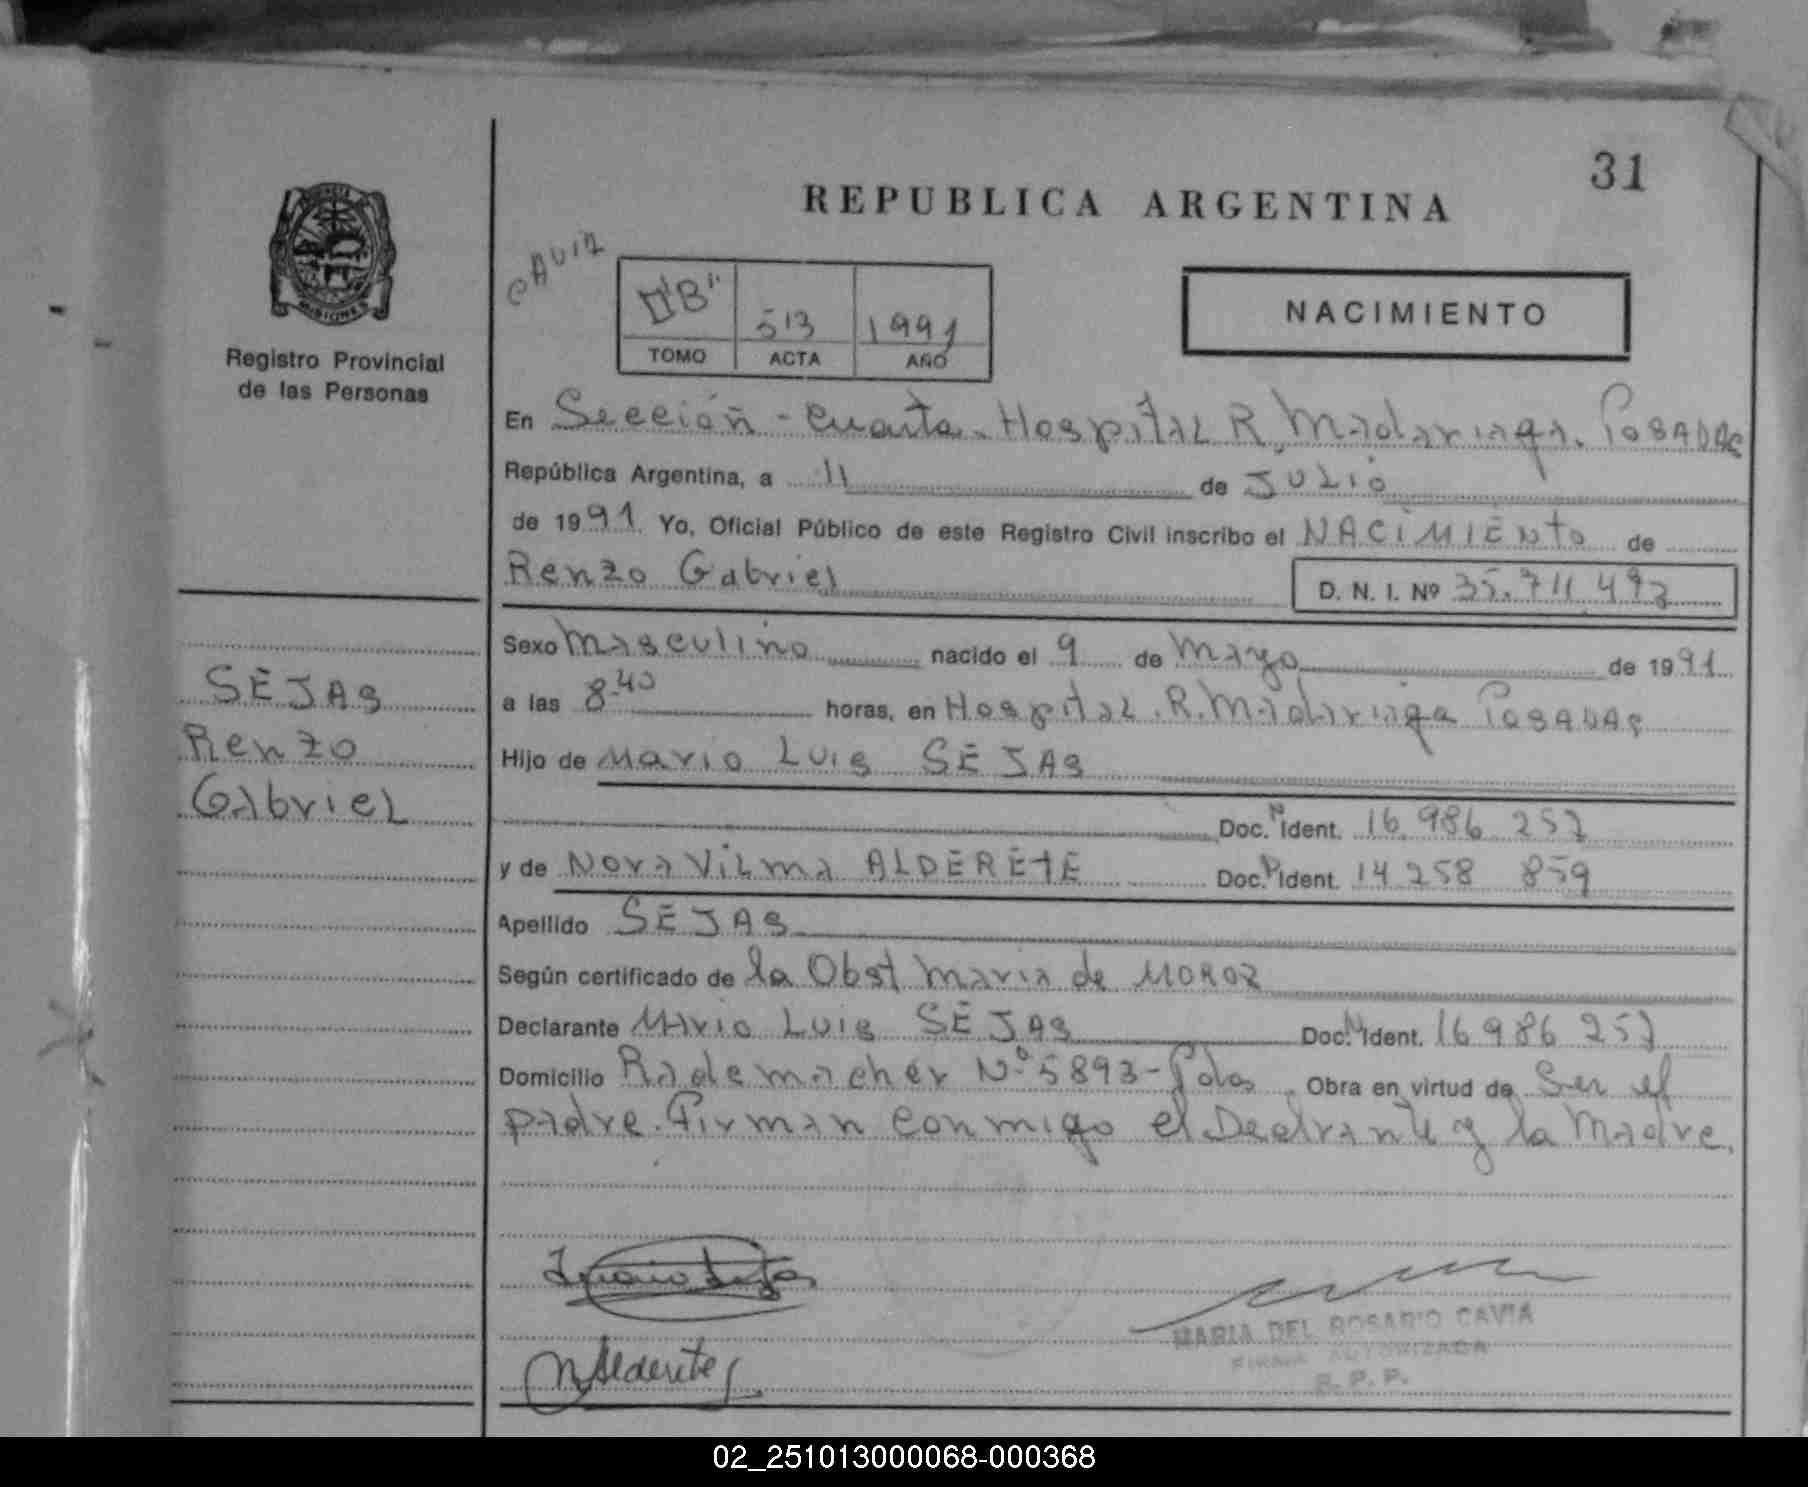 31
REPUBLICA ARGENTINA
CAVIA
"B" 513 1991
TOMO ACTA AÑO
NACIMIENTO
MISIONES
Registro Provincial
de las Personas
En Sección - Cuarta. Hospital R. Madariaga. POSADAS
República Argentina, a 11 de JULIO
de 1991. Yo, Oficial Público de este Registro Civil inscribo el NACIMIENTO de
Renzo Gabriel D. N. I. Nº 35.711.493
Sexo Masculino nacido el 9 de Mayo de 1991
a las 8.40 horas, en Hospital. R. Madariaga POSADAS
Hijo de Mario Luis SEJAS
Doc. N Ident. 16.986 257
y de Nora Vilma ALDERETE Doc. N Ident. 14 258 859
Apellido SEJAS
Según certificado de la Obst Maria de MOROZ
Declarante Mario Luis SEJAS Doc. N Ident. 16 986 257
Domicilio Rademacher Nº 5893 - Pdas. Obra en virtud de Ser el
padre. Firman conmigo el Declarante y la Madre.
SEJAS
Renzo
Gabriel
Mario Sejas
N Alderete
MARIA DEL ROSARIO CAVIA
FIRMA AUTORIZADA
R. P. P.
02_251013000068-000368